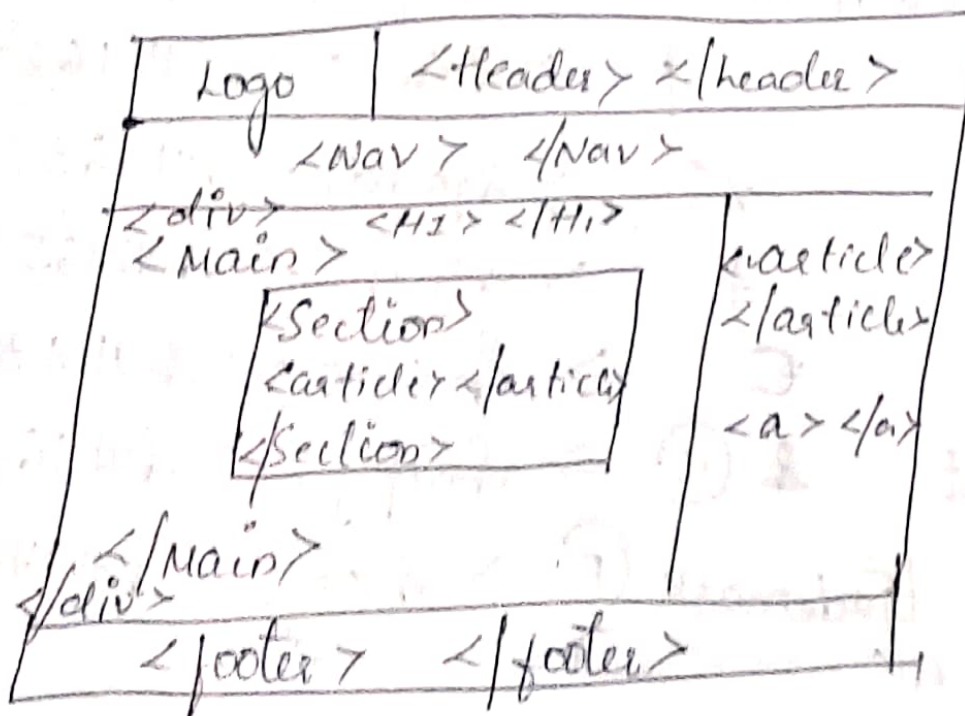 Logo <Header> </header>
<Nav> </Nav>
<div> <H1> </H1>
<Main>
<Section>
<article> </article>
</Section>
</Main>
</div>
<article>
</article>
<a> </a>
<footer> </footer>